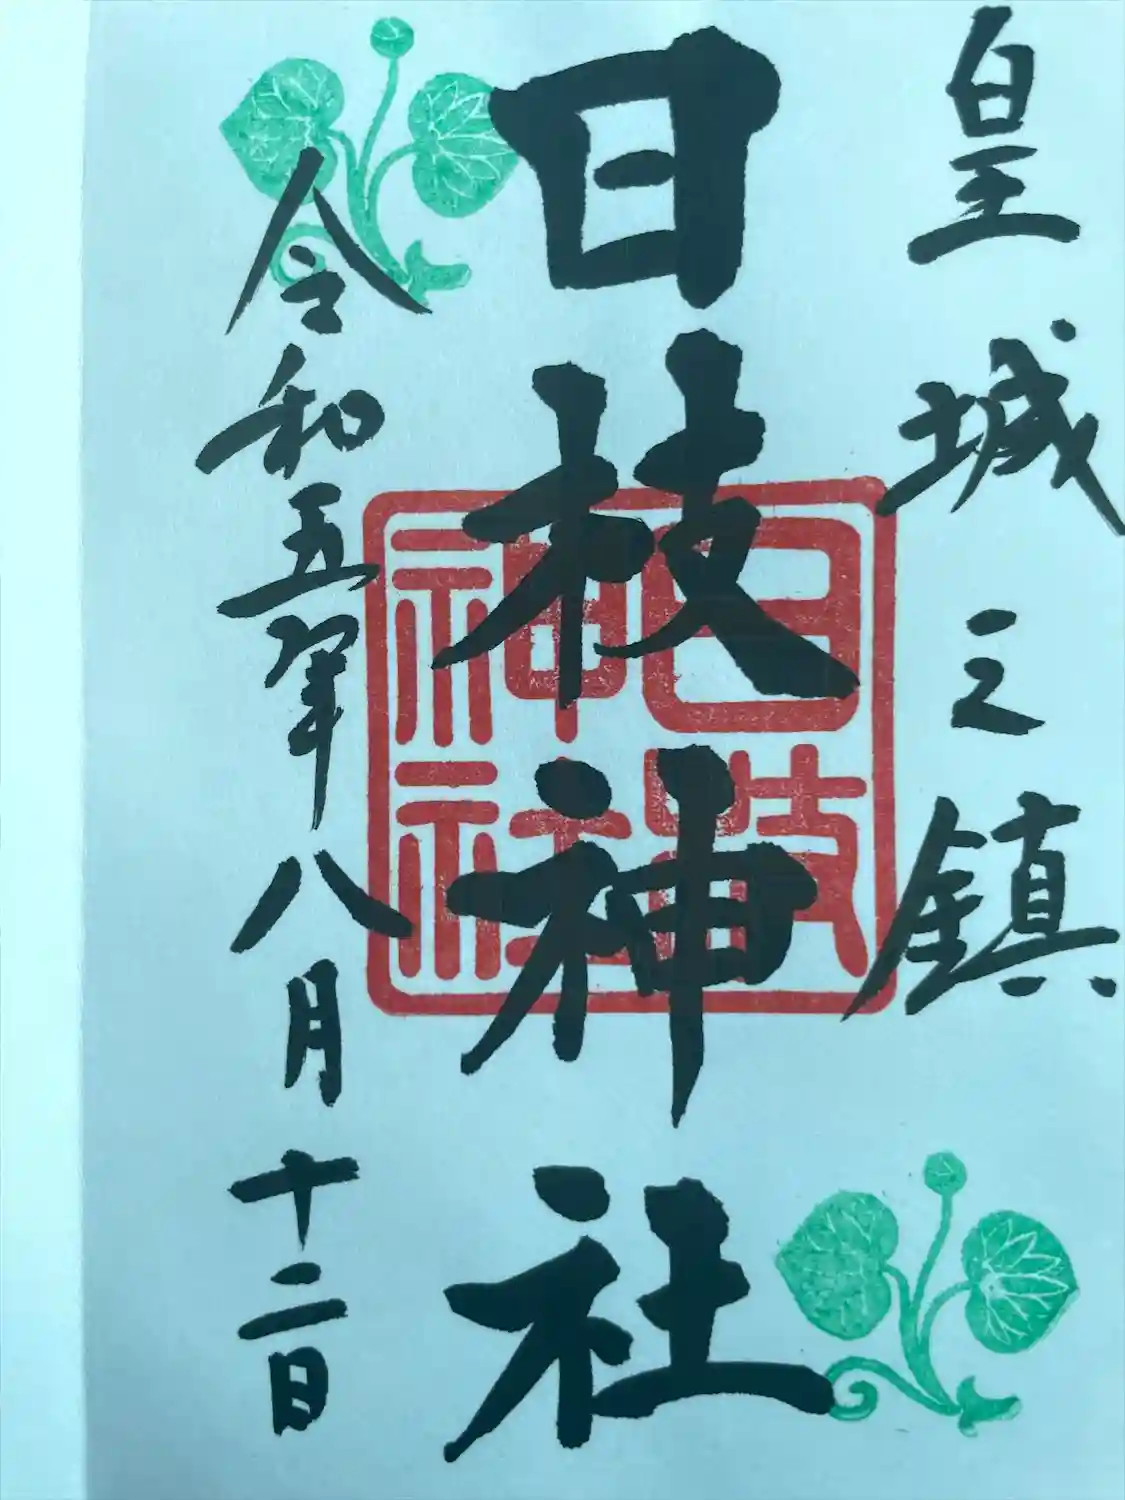 皇城之鎮
日枝神社
日枝
神社
令和五年八月十二日